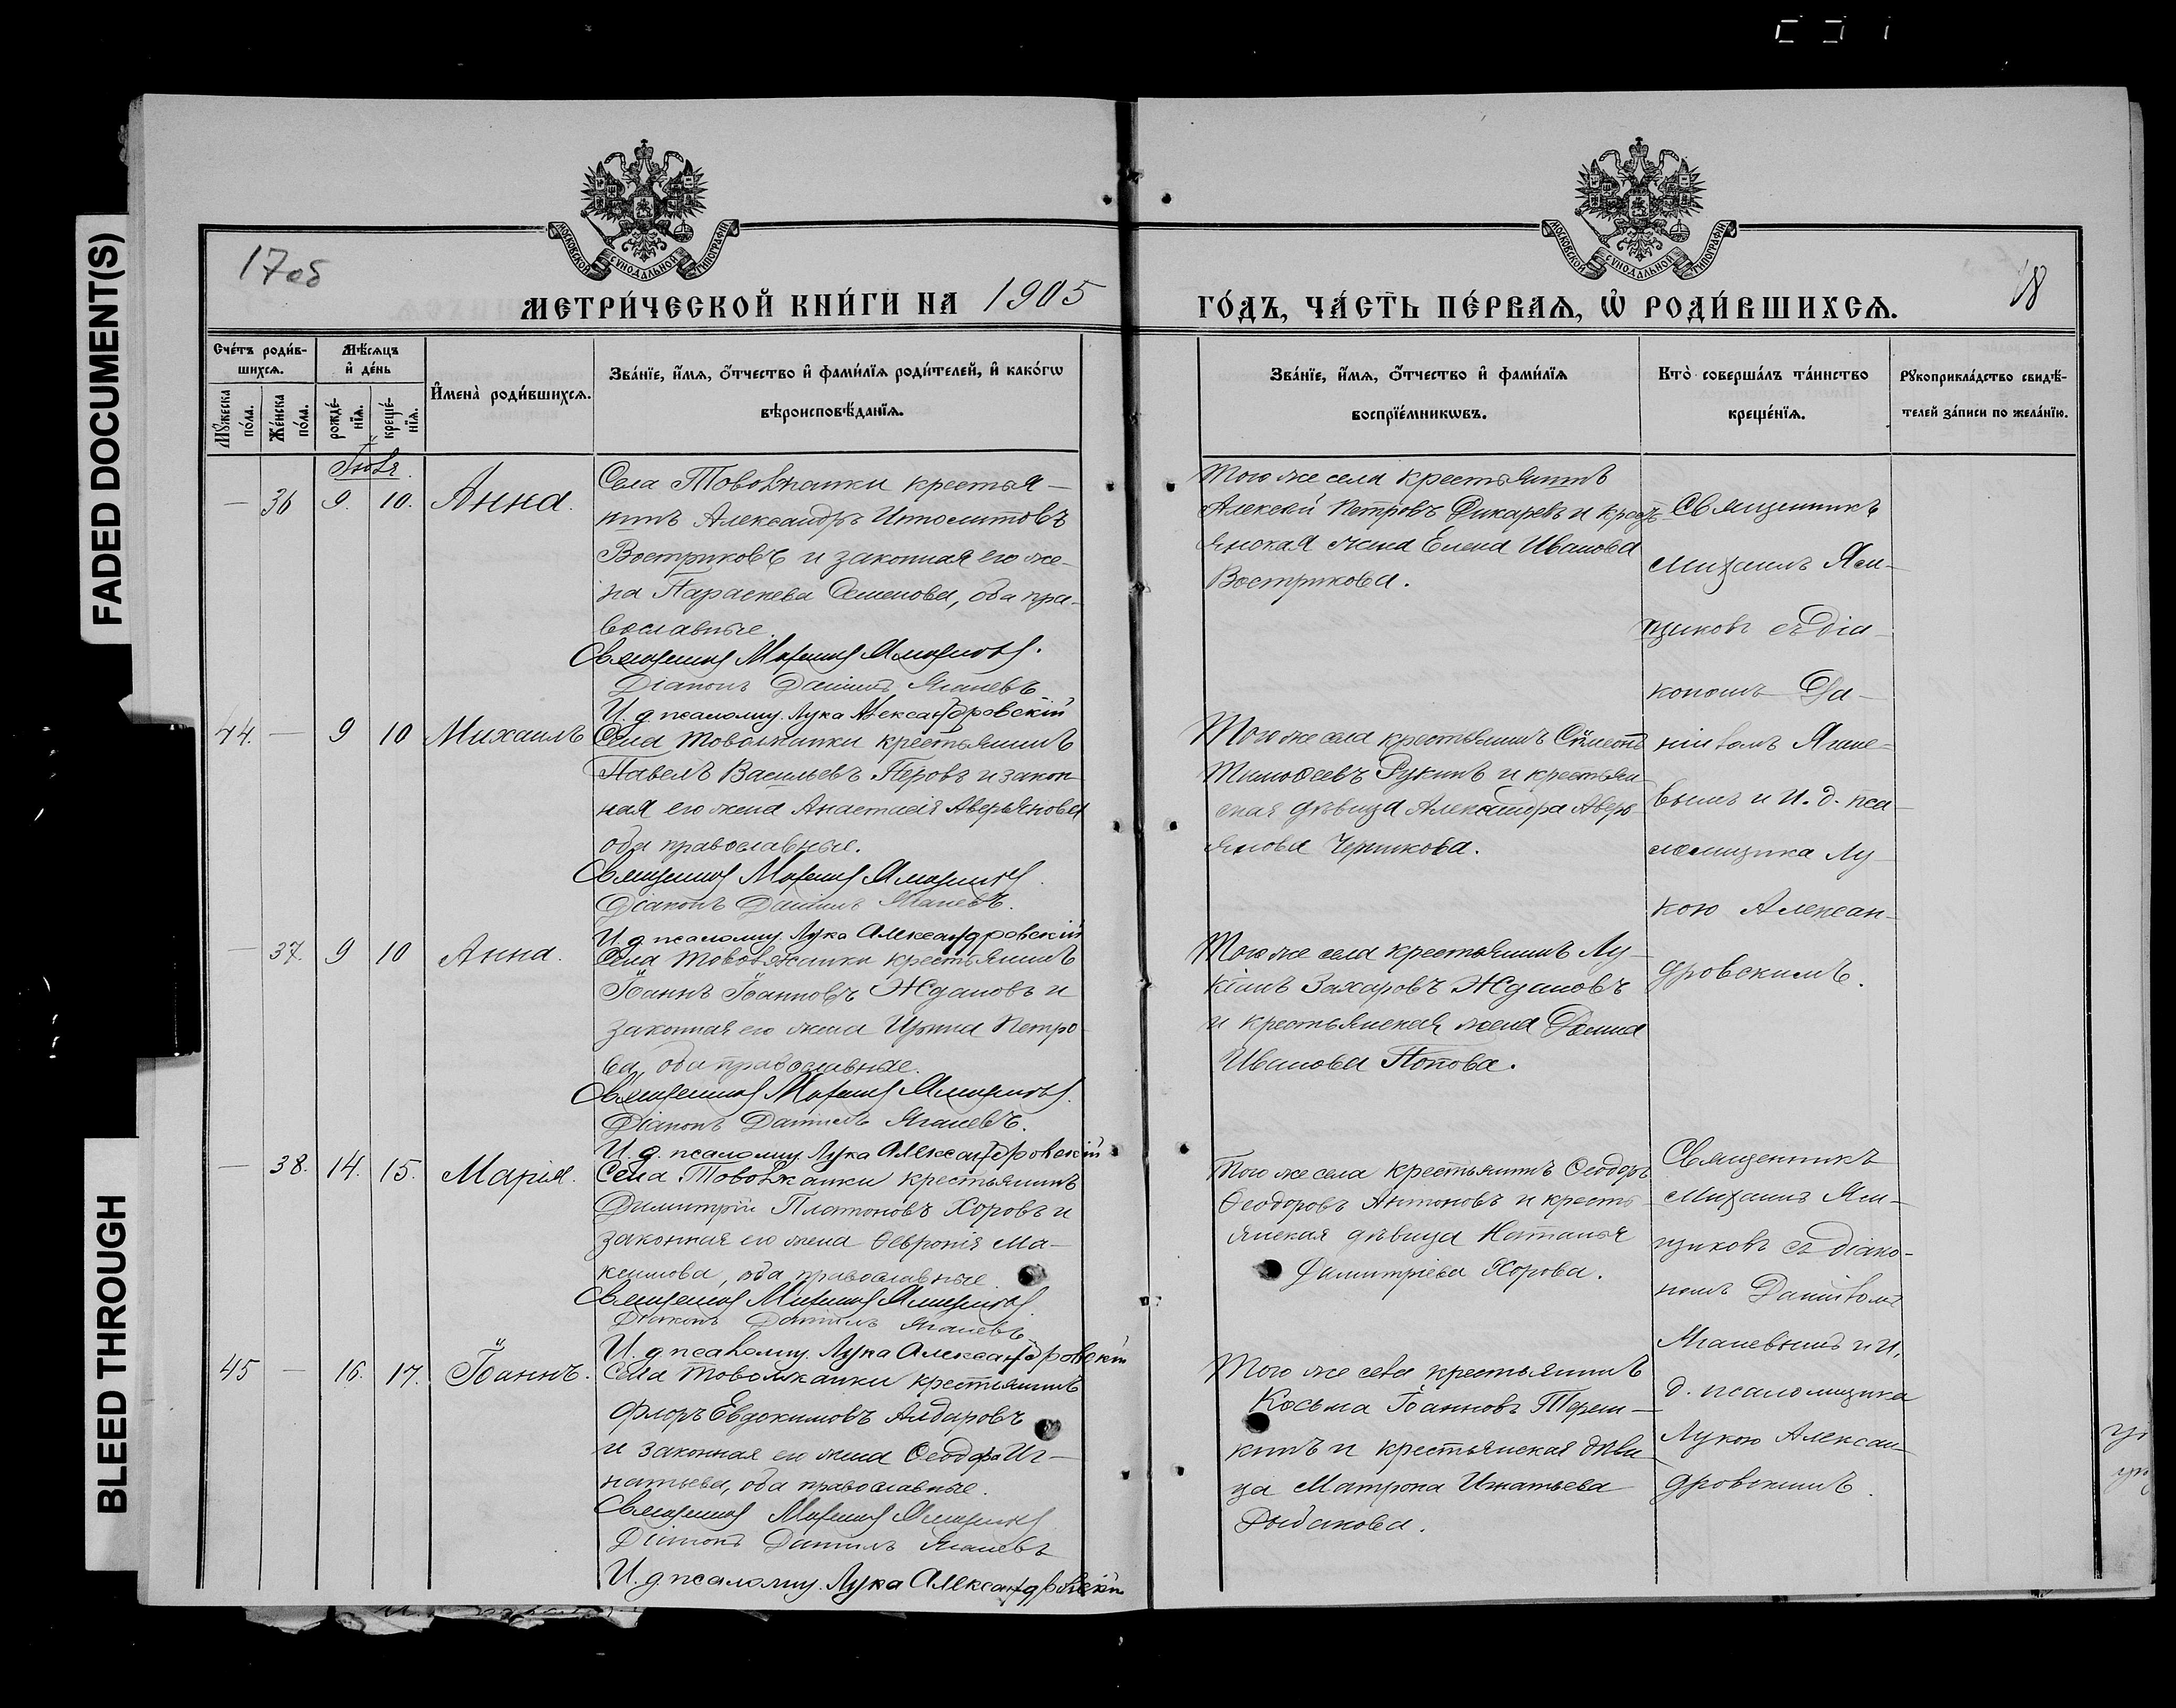 FADED DOCUMENT(S)
BLEED THROUGH
17об
18
МОСКОВСКОЙ СѴНОДАЛЬНОЙ ТИПОГРАФІИ
МОСКОВСКОЙ СѴНОДАЛЬНОЙ ТИПОГРАФІИ
МЕТРИ́ЧЕСКОЙ КНИ́ГИ НА 1905
ГО́ДЪ, ЧА́СТЬ ПЕ́РВАѦ, Ѡ҆ РОДИ́ВШИХСѦ.
Сче́тъ роди́в-
шихсѧ.
Мꙋ́жеска по́ла.
Же́нска по́ла.
Мѣ́сѧцъ
и҆ де́нь
рожде́-
нїѧ.
креще́-
нїѧ.
И҆мена̀ роди́вшихсѧ.
Зва́нїе, и҆́мѧ, ѻ҆́тчество и҆ фами́лїѧ роди́телей, и҆ како́гѡ
вѣроисповѣ́данїѧ.
Зва́нїе, и҆́мѧ, ѻ҆́тчество и҆ фами́лїѧ
воспрїе́мникѡвъ.
Кто̀ соверша́лъ та́инство
креще́нїѧ.
Рꙋкоприкла́дство свидѣ́-
телей за́писи по жела́нїю.
Іюль
— 36 9. 10. Анна.
Села Товолжанки крестья-
нинъ Александръ Ипполитовъ
Востриковъ и законная его же-
на Параскева Семенова, оба пра-
вославные.
Священникъ Михаилъ Ямщиковъ.
Діаконъ Даніилъ Яганевъ
И. д. псаломщ. Лука Александровскій
Того же села крестьянинъ
Алексѣй Петровъ Дикаревъ и крест-
янская жена Елена Иванова
Вострикова.
Священникъ
Михаилъ Ям-
щиковъ съ діа-
кономъ Да-
ніиломъ Ягане-
вымъ и И. д. пса-
ломщика Лу-
кою Алексан-
дровскимъ.
44. — 9 10 Михаилъ
Села Товолжанки крестьянинъ
Павелъ Васильевъ Перовъ и закон
ная его жена Анастасія Аверьянова
оба православные.
Священникъ Михаилъ Ямщиковъ.
Діаконъ Даніилъ Яганевъ.
И. д. псаломщ. Лука Александровскій
Того же села крестьянинъ Сѵмеонъ
Тимоѳеевъ Рукинъ и крестьян
ская дѣвица Александра Аверь-
янова Черникова.
— 37. 9 10 Анна.
Села Товолжанки крестьянинъ
Іоаннъ Іоанновъ Ждановъ и
законная его жена Ирина Петро
ва, оба православные.
Священникъ Михаилъ Ямщиковъ.
Діаконъ Даніилъ Яганевъ.
И. д. псаломщ. Лука Александровскій
Того же села крестьянинъ Лу-
кіанъ Захаровъ Ждановъ
и крестьянская жена Домна
Иванова Попова.
— 38. 14. 15. Марія.
Села Товолжанки крестьянинъ
Димитрій Платоновъ Хоровъ и
законная его жена Ѳевронія Ма-
ксимова, оба православные.
Священникъ Михаилъ Ямщиковъ.
Діаконъ Даніилъ Яганевъ
И. д. псаломщ. Лука Александровскій
Того же села крестьянинъ Ѳеодоръ
Ѳеодоровъ Антоновъ и кресть-
янская дѣвица Наталья
Димитріева Хорова.
Священникъ
Михаилъ Ям-
щиковъ съ діако-
номъ Даніиломъ
Яганевымъ и И.
д. псаломщика
Лукою Алексан-
дровскимъ.
45 — 16. 17. Іоаннъ.
Села Товолжанки крестьянинъ
Флоръ Евдокимовъ Алдаровъ
и законная его жена Ѳеодора Иг-
натьева, оба православные.
Священникъ Михаилъ Ямщиковъ
Діаконъ Даніилъ Яганевъ
И. д. псаломщ. Лука Александровскій
Того же села крестьянинъ
Косьма Іоанновъ Тереш-
кинъ и крестьянская дѣви
ца Матрона Игнатьева
Рыбакова.